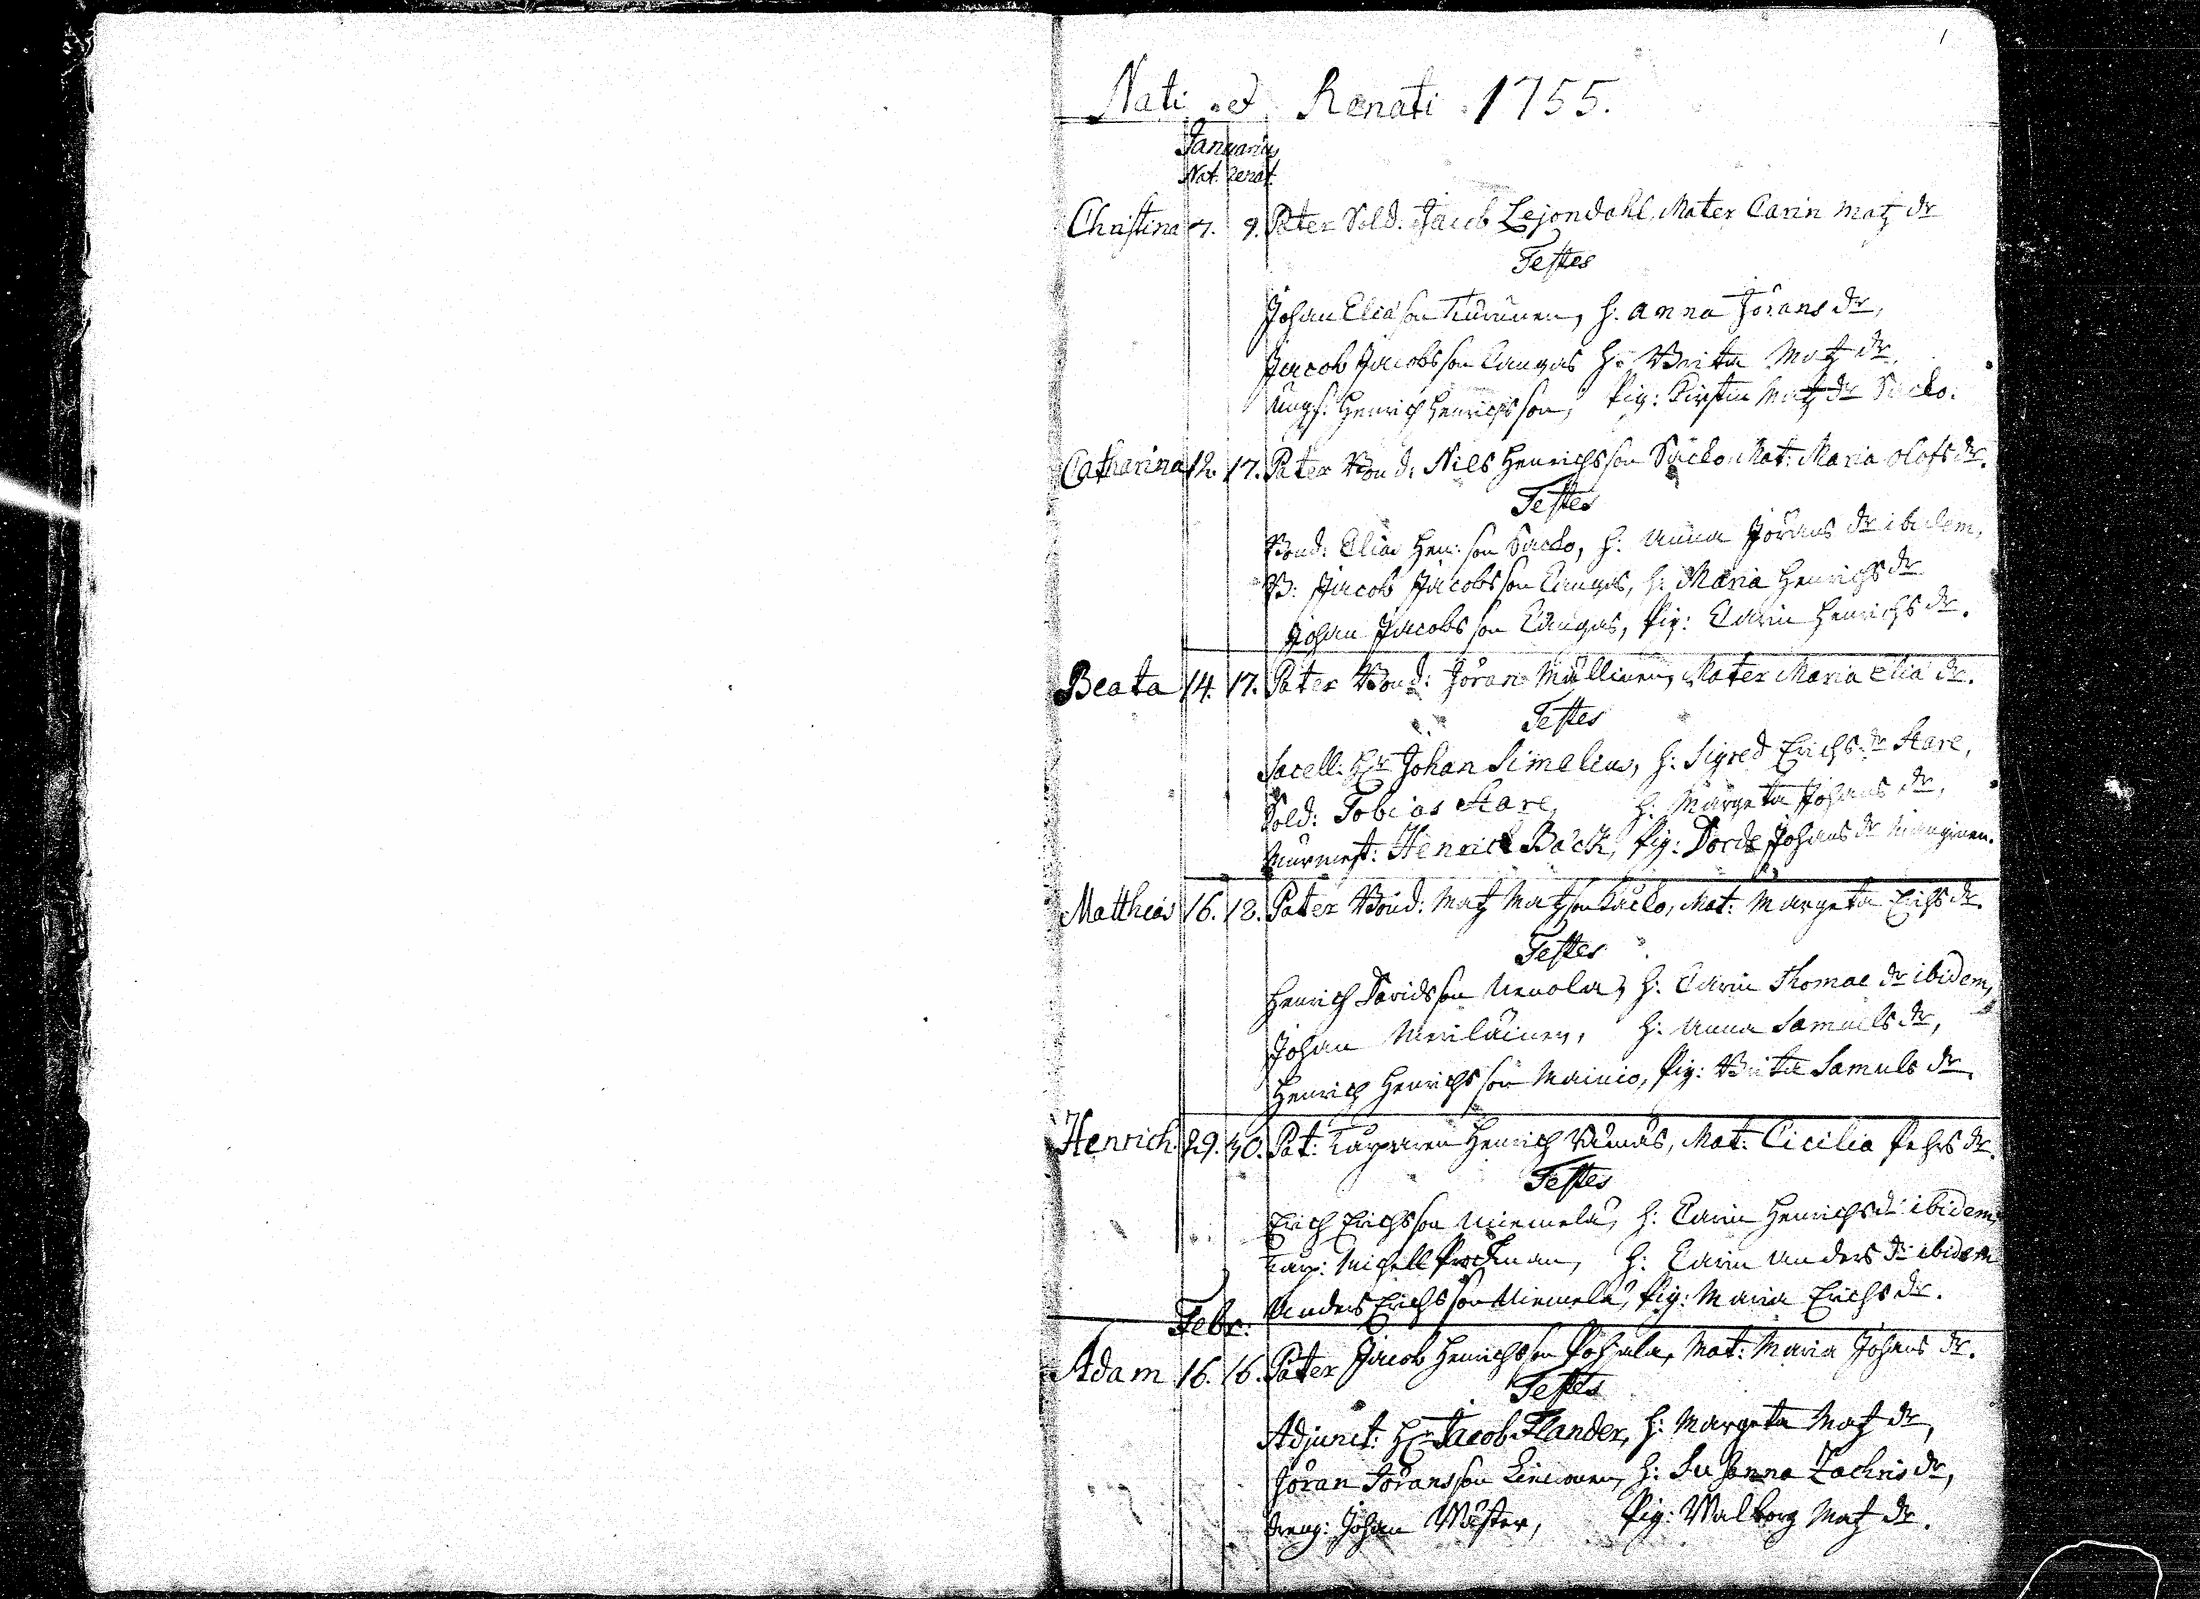 1
Nati et Renati 1755.
Januarius
Nat. renat.
Christina 7. 9. Pater Sold: Jacob Lejondahl, Mater Carin Matz dr
Testes
Johan Eliasson, h. Anna Jörans dr,
Jacob Jacobsson Cangas h: Brita Matz dr,
Ungk: Henrich Henrichsson, Pig: Kirstin Matz dr Säcko.
Catharina 12. 17. Pater Bond: Nils Henrichsson Säcko, Mat: Maria Olofs dr.
Testes
Bond: Elias Hen: son Säcko, h: Anna Jörans dr ibidem,
B: Jacob Jacobsson Cangas, h: Maria Henrichs dr
Johan Jacobsson Cangas, Pig: Carin Henrichs dr.
Beata 14. 17. Pater Bond: Jöran Mullinen, Mater Maria Elia dr.
Testes
Sacell: Hr Johan Simelius, h: Sigred Erichs dr Stare,
Sold: Tobias Stare, h: Margeta Johans dr,
Murmest: Henrich Bäck, Pig: Dorde Johans dr Manginen.
Matthias 16. 18. Pater Bond: Matz Matzson Säcko, Mat: Margeta Erichs dr.
Testes
Henrich Davidsson, h: Carin Thomae dr ibidem,
Johan Meriläinen, h: Anna Samuels dr,
Henrich Henrichsson Mainio, Pig: Brita Samuls dr.
Henrich 29. 30. Pat: Henrich, Mat: Cicilia Pehrs dr.
Testes
Erich Erichsson Niemelä, h: Carin Henrichs dr ibidem,
Michell Prockman, h: Carin Anders dr ibidem
Anders Erichsson Niemelä, Pig: Maria Erichs dr.
Febr:
Adam 16. 16. Pater Jacob Henrichsson Pohjala, Mat: Maria Johans dr.
Testes
Adjunct: Hr Jacob Flander, h: Margeta Matz dr,
Jöran Jöransson, h: Susanna Zachris dr,
Dreng: Johan Wäster, Pig: Walborg Matz dr.